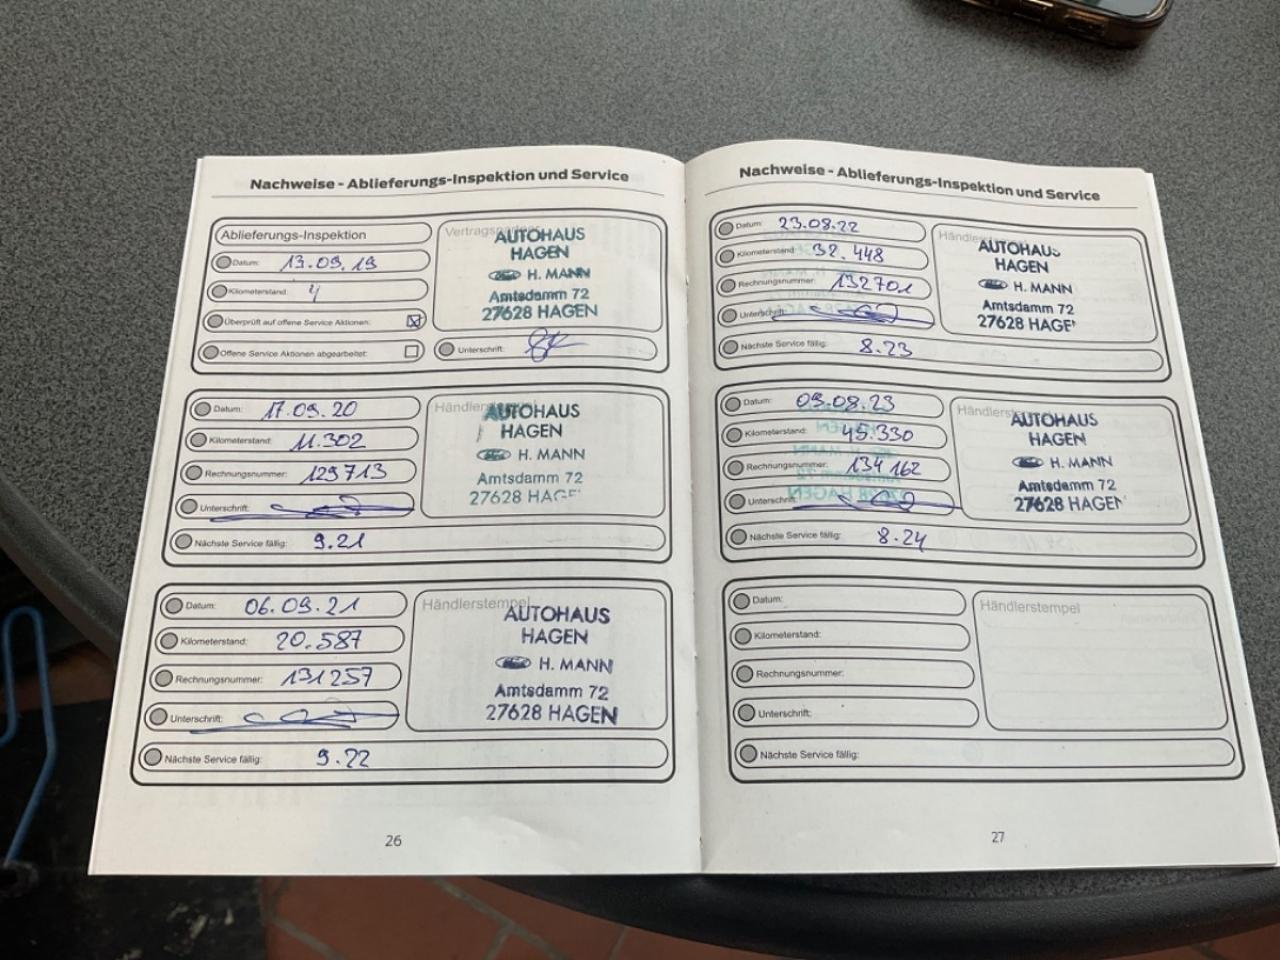 Nachweise - Ablieferungs-Inspektion und Service
Ablieferungs-Inspektion
Datum: 13.09.19
Kilometerstand: 4
Überprüft auf offene Service Aktionen:
Offene Service Aktionen abgearbeitet:
AUTOHAUS
HAGEN
Ford H. MANN
Amtsdamm 72
27628 HAGEN
Unterschrift:
Datum: 17.09.20
Kilometerstand: 11.302
Rechnungsnummer: 129713
Unterschrift:
Nächste Service fällig: 9.21
AUTOHAUS
HAGEN
Ford H. MANN
Amtsdamm 72
27628 HAGE
Datum: 06.09.21
Kilometerstand: 20.587
Rechnungsnummer: 131257
Unterschrift:
Nächste Service fällig: 9.22
Händlerstempel
AUTOHAUS
HAGEN
Ford H. MANN
Amtsdamm 72
27628 HAGEN
26
Nachweise - Ablieferungs-Inspektion und Service
Datum: 23.08.22
Kilometerstand: 32.448
Rechnungsnummer: 132701
Unterschrift:
Nächste Service fällig: 8.23
AUTOHAUS
HAGEN
Ford H. MANN
Amtsdamm 72
27628 HAGE
Datum: 09.08.23
Kilometerstand: 45.330
Rechnungsnummer: 134162
Unterschrift:
Nächste Service fällig: 8.24
AUTOHAUS
HAGEN
Ford H. MANN
Amtsdamm 72
27628 HAGEN
Datum:
Kilometerstand:
Rechnungsnummer:
Unterschrift:
Nächste Service fällig:
Händlerstempel
27